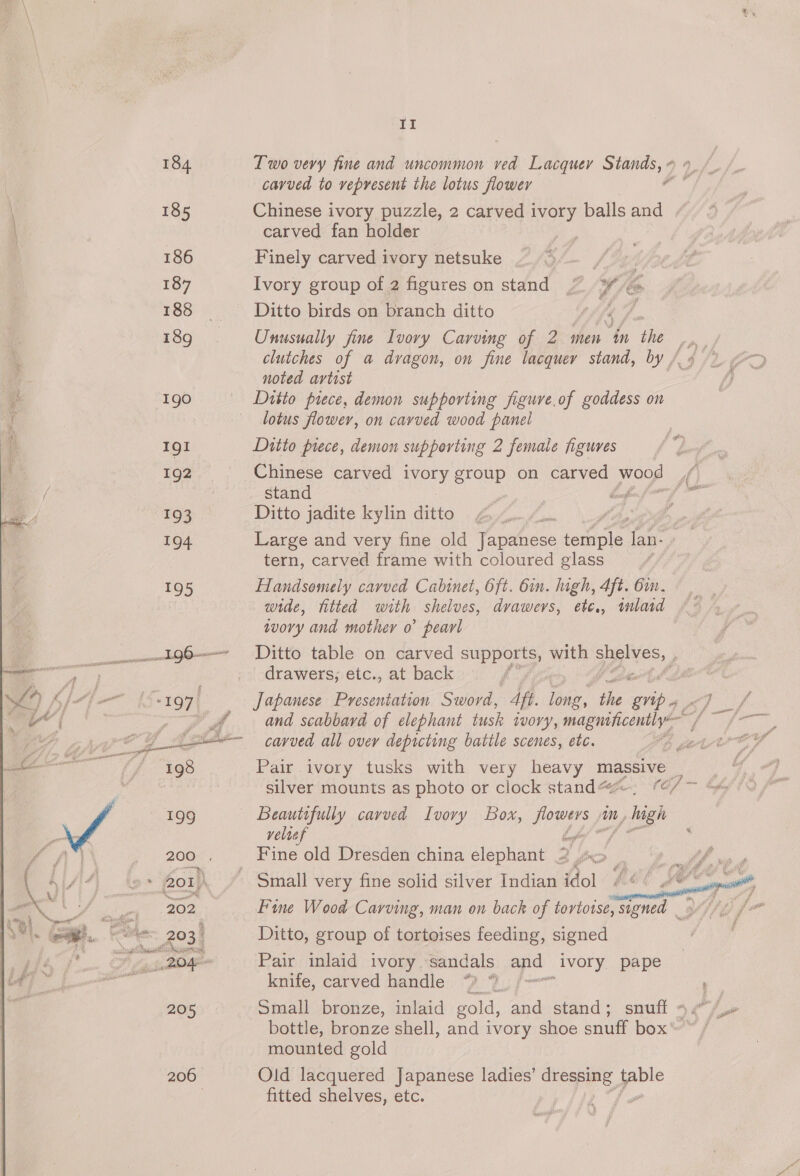 II
184 Two very fine and uncommon red Lacquer Stands,
carved to represent the lotus flower
185 Chinese ivory puzzle, 2 carved ivory balls and
carved fan holder
186 Finely carved ivory netsuke
187 Ivory group of 2 figures on stand
188 Ditto birds on branch ditto
189 Unusually fine Ivory Carving of 2 men in the
clutches of a dragon, on fine lacquer stand, by
noted artist
190 Ditto piece, demon supporting figure of goddess on
lotus flower, on carved wood panel
191 Ditto piece, demon supporting 2 female figures
192 Chinese carved ivory group on carved wood
stand
193 Ditto jadite kylin ditto
194 Large and very fine old Japanese temple lan-
tern, carved frame with coloured glass
195 Handsomely carved Cabinet, 6ft. 6in. high, 4ft. 6in.
wide, fitted with shelves, drawers, etc., inlaid
ivory and mother o' pearl
196 Ditto table on carved supports, with shelves,
drawers, etc., at back
197 Japanese Presentation Sword, 4ft. long, the grip
and scabbard of elephant tusk ivory, magnificently
carved all over depicting battle scenes, etc.
198 Pair ivory tusks with very heavy massive
silver mounts as photo or clock stand
199 Beautifully carved Ivory Box, flowers in high
relief
200 Fine old Dresden china elephant
201 Small very fine solid silver Indian idol
202 Fine Wood Carving, man on back of tortoise, signed
203 Ditto, group of tortoises feeding, signed
204 Pair inlaid ivory sandals and ivory pape
knife, carved handle
205 Small bronze, inlaid gold, and stand; snuff
bottle, bronze shell, and ivory shoe snuff box
mounted gold
206 Old lacquered Japanese ladies' dressing table
fitted shelves, etc.